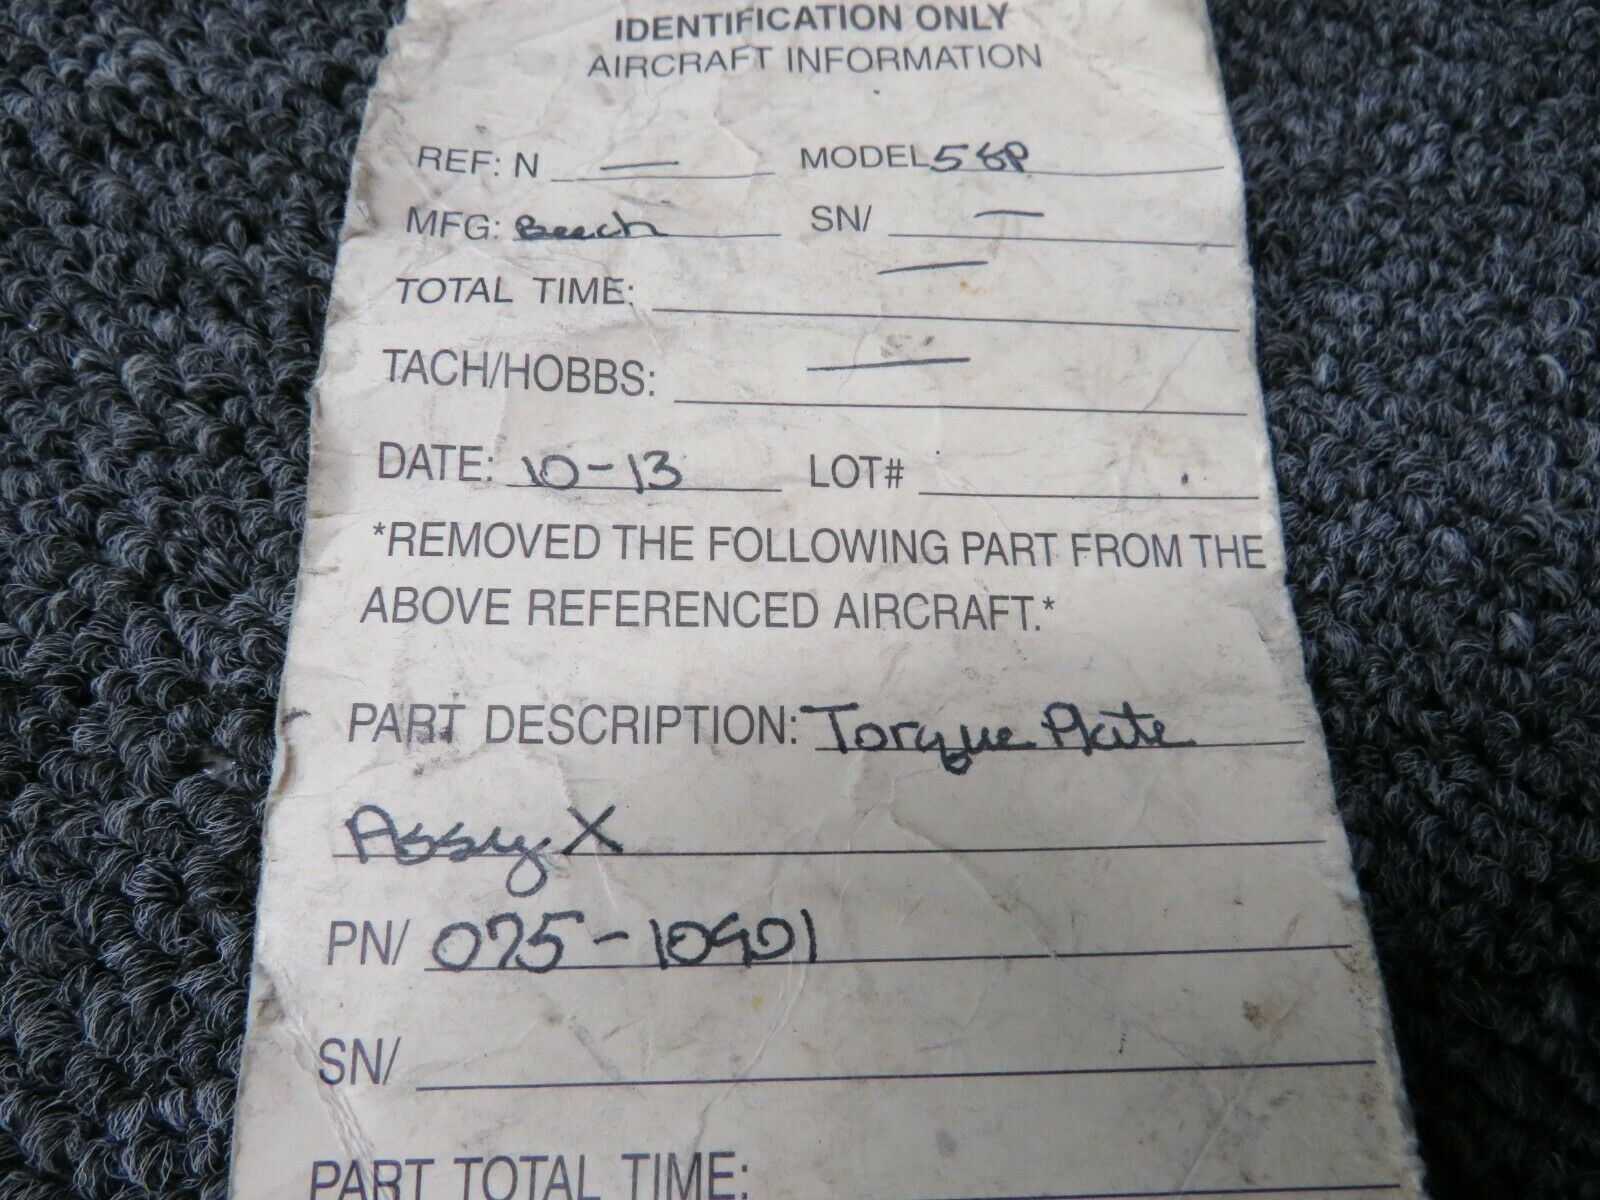 IDENTIFICATION ONLY
AIRCRAFT INFORMATION
REF: N — MODEL 58P
MFG: Beech SN/ —
TOTAL TIME: —
TACH/HOBBS: —
DATE: 10-13 LOT#
*REMOVED THE FOLLOWING PART FROM THE
ABOVE REFERENCED AIRCRAFT.*
PART DESCRIPTION: Torque Plate
Assy X
PN/ 075-10901
SN/
PART TOTAL TIME: